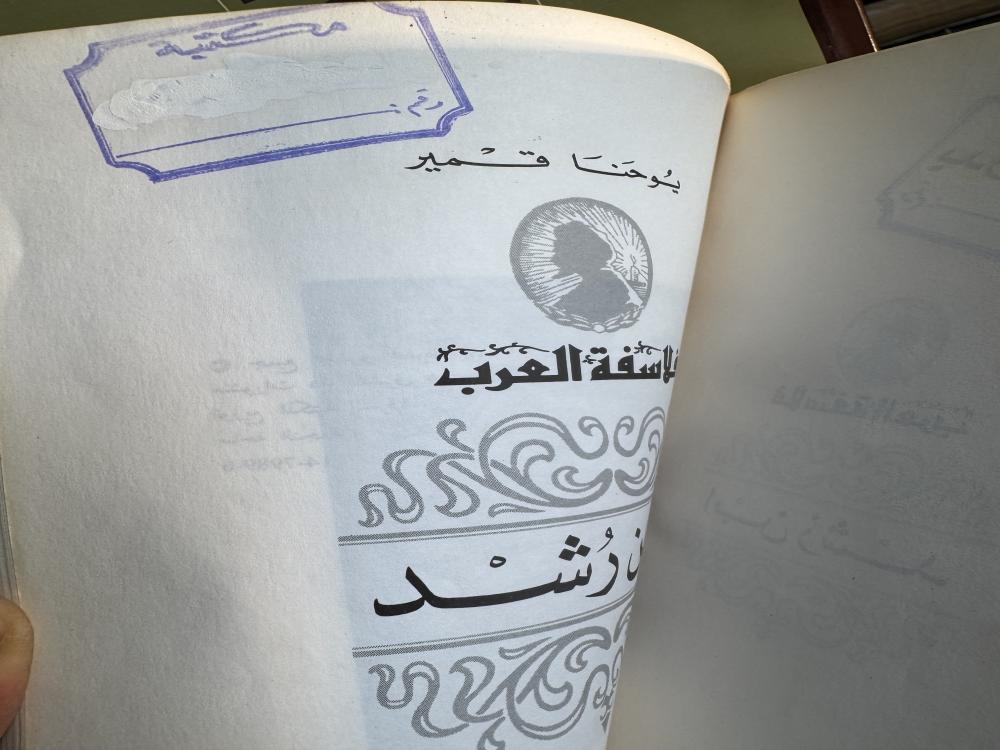 مكتبة
رقم :
يُوحَنَا قُمير
فلاسفة العرب
بن رُشْد